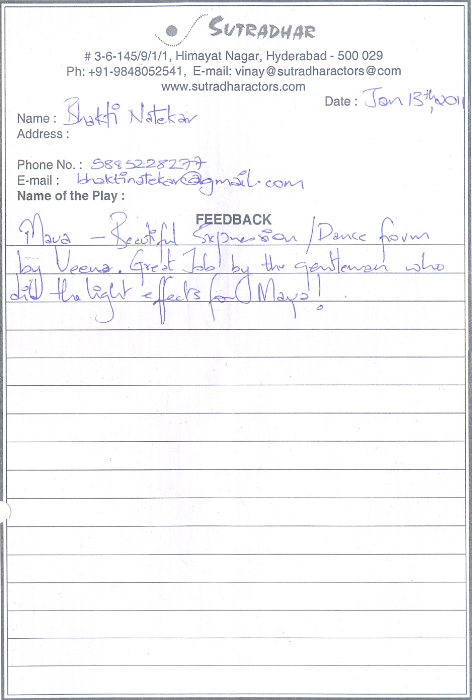 SUTRADHAR
# 3-6-145/9/1/1, Himayat Nagar, Hyderabad - 500 029
Ph: +91-9848052541, E-mail: vinay@sutradharactors@com
www.sutradharactors.com
Date : Jan 13th, 2011
Name : Bhakti Natekar
Address :
Phone No. : 5885228277
E-mail : bhaktinatekar@gmail.com
Name of the Play :
FEEDBACK
Maya – Beautiful Expression / Dance form
by Veena. Great Job by the gentleman who
did the light effects for Maya!